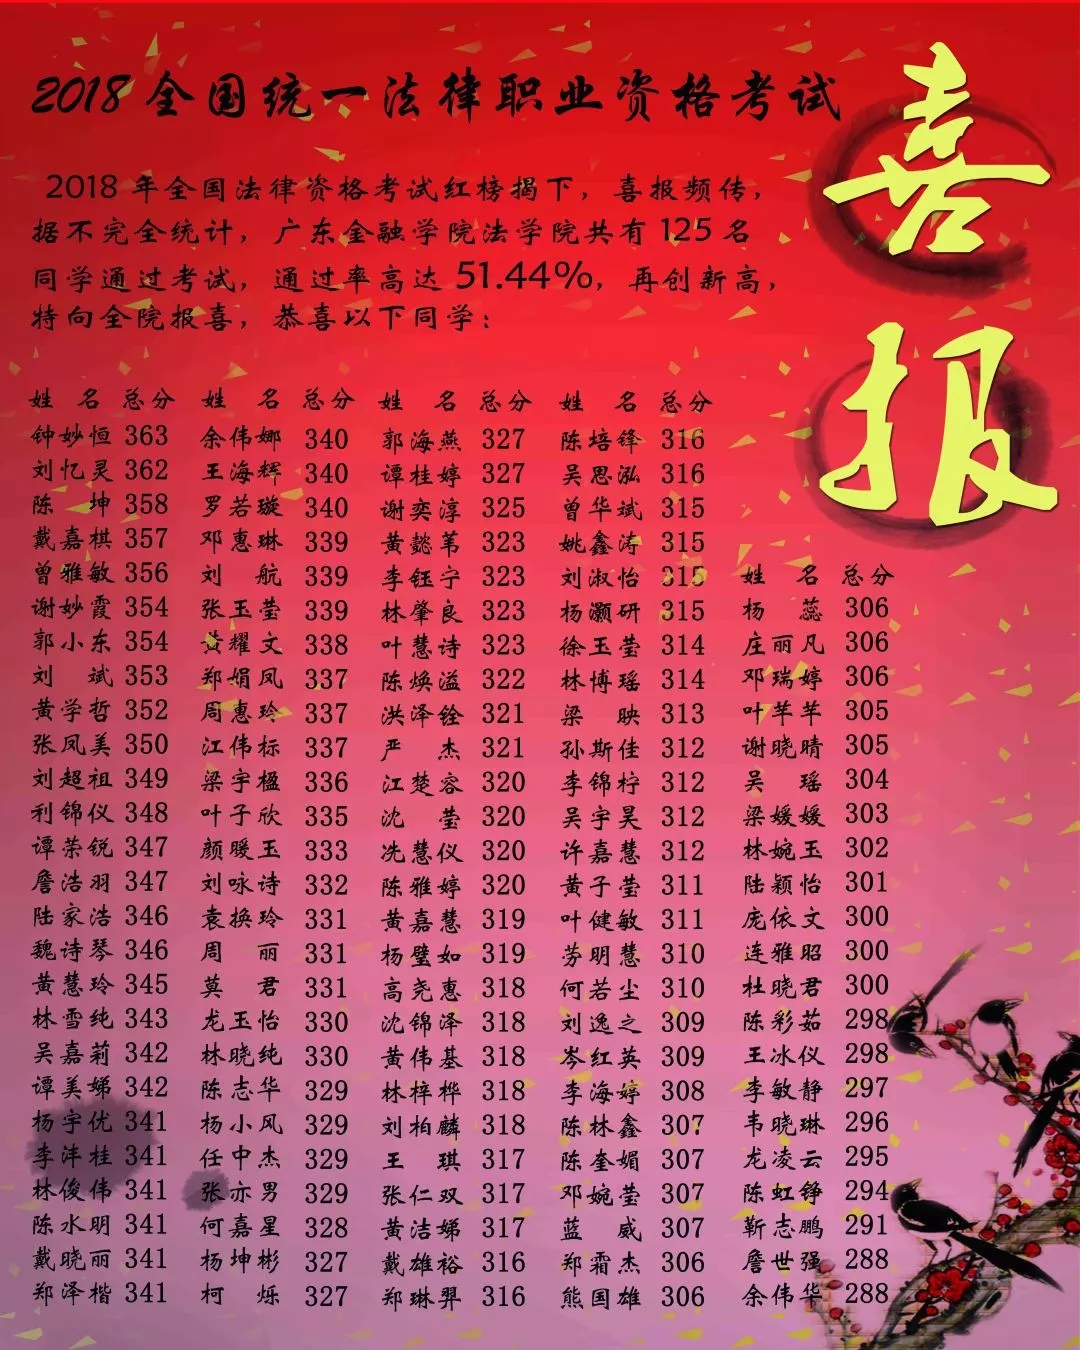 2018全国统一法律职业资格考试
喜报
2018年全国法律资格考试红榜揭下，喜报频传，
据不完全统计，广东金融学院法学院共有125名
同学通过考试，通过率高达51.44%，再创新高，
特向全院报喜，恭喜以下同学：
姓 名 总分
钟妙恒 363
刘忆灵 362
陈 坤 358
戴嘉棋 357
曾雅敏 356
谢妙霞 354
郭小东 354
刘 斌 353
黄学哲 352
张凤美 350
刘超祖 349
利锦仪 348
谭荣锐 347
詹浩羽 347
陆家浩 346
魏诗琴 346
黄慧玲 345
林雪纯 343
吴嘉莉 342
谭美娣 342
杨宇优 341
李沣桂 341
林俊伟 341
陈水明 341
戴晓丽 341
郑泽楷 341
姓 名 总分
余伟娜 340
王海辉 340
罗若璇 340
邓惠琳 339
刘 航 339
张玉莹 339
黄耀文 338
郑娟凤 337
周惠玲 337
江伟标 337
梁宇楹 336
叶子欣 335
颜暖玉 333
刘咏诗 332
袁换玲 331
周 丽 331
莫 君 331
龙玉怡 330
林晓纯 330
陈志华 329
杨小风 329
任中杰 329
张亦男 329
何嘉星 328
杨坤彬 327
柯 烁 327
姓 名 总分
郭海燕 327
谭桂婷 327
谢奕淳 325
黄懿苇 323
李钰宁 323
林肇良 323
叶慧诗 323
陈焕溢 322
洪泽铨 321
严 杰 321
江楚容 320
沈 莹 320
冼慧仪 320
陈雅婷 320
黄嘉慧 319
杨璧如 319
高尧惠 318
沈锦泽 318
黄伟基 318
林梓桦 318
刘柏麟 318
王 琪 317
张仁双 317
黄洁娣 317
戴雄裕 316
郑琳羿 316
姓 名 总分
陈培锋 316
吴思泓 316
曾华斌 315
姚鑫涛 315
刘淑怡 315
杨灏研 315
徐玉莹 314
林博瑶 314
梁 映 313
孙斯佳 312
李锦柠 312
吴宇昊 312
许嘉慧 312
黄子莹 311
叶健敏 311
劳明慧 310
何若尘 310
刘逸之 309
岑红英 309
李海婷 308
陈林鑫 307
陈奎媚 307
邓婉莹 307
蓝 威 307
郑霜杰 306
熊国雄 306
姓 名 总分
杨 蕊 306
庄丽凡 306
邓瑞婷 306
叶芊芊 305
谢晓晴 305
吴 瑶 304
梁媛媛 303
林婉玉 302
陆颖怡 301
庞依文 300
连雅昭 300
杜晓君 300
陈彩茹 298
王冰仪 298
李敏静 297
韦晓琳 296
龙凌云 295
陈虹铮 294
靳志鹏 291
詹世强 288
余伟华 288